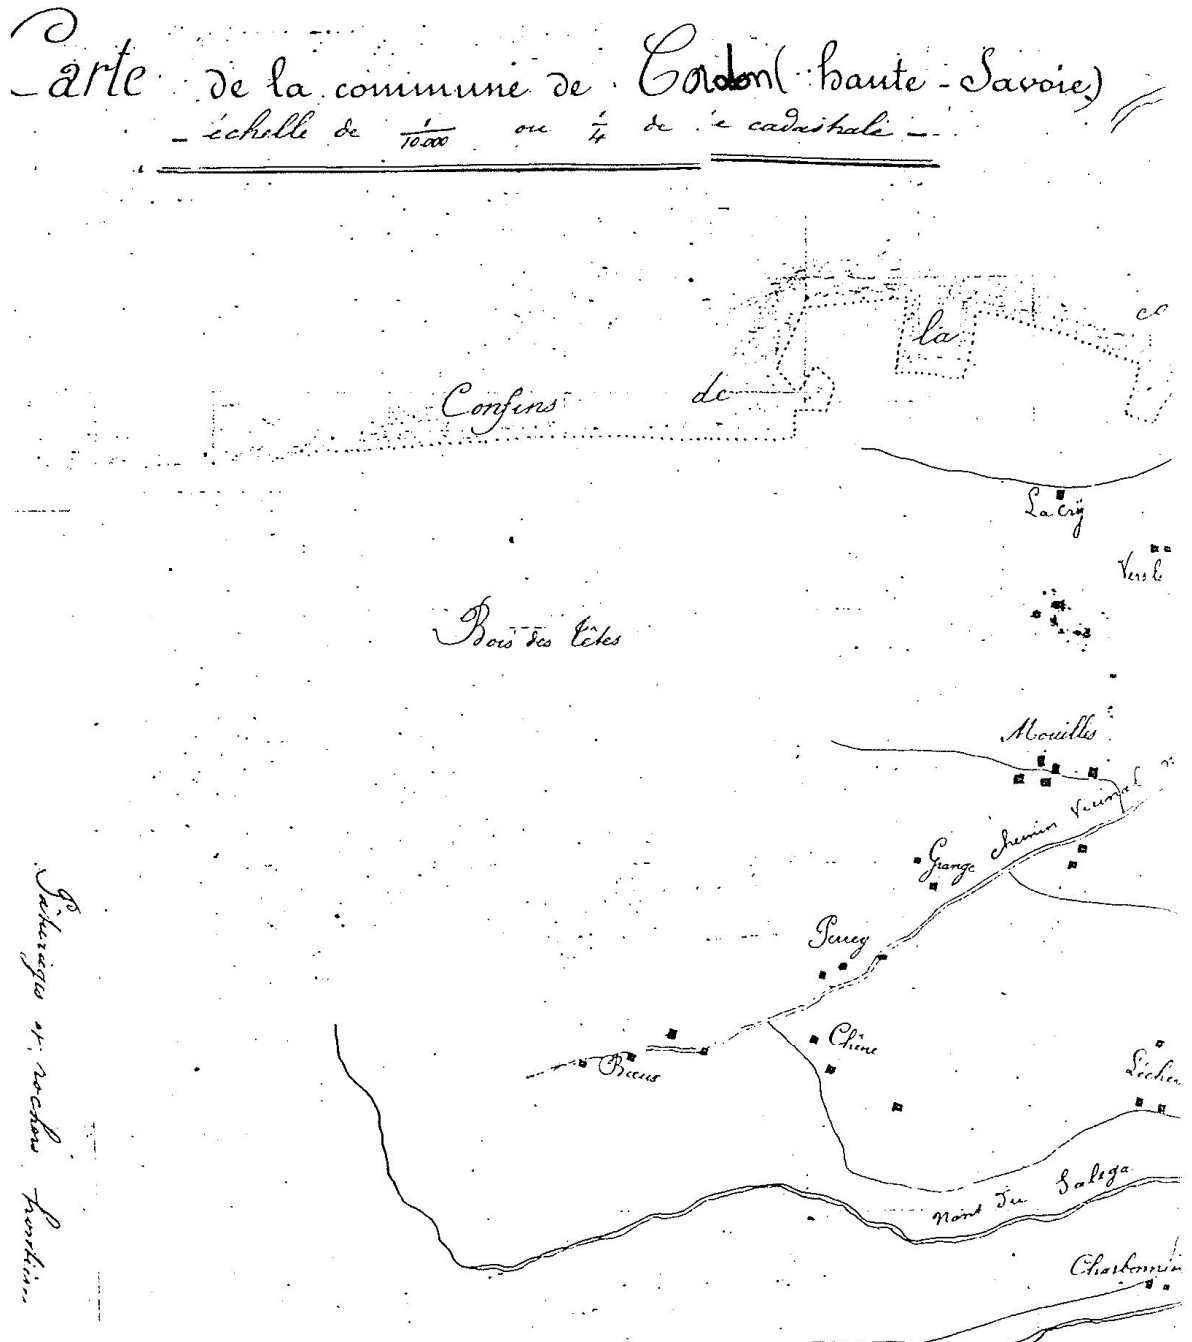 Carte de la commune de Cordon (haute-Savoie)
- échelle de 1/10.000 ou 1/4 de cadastrale -
la
Confins de
La Crÿ
Vers le
Bois des Têtes
Mouilles
chemin vicinal
Grange
Perrey
Chêne
Bœus
Lécher
Nant du Salega
Charbonnie
Pâturages et rochers